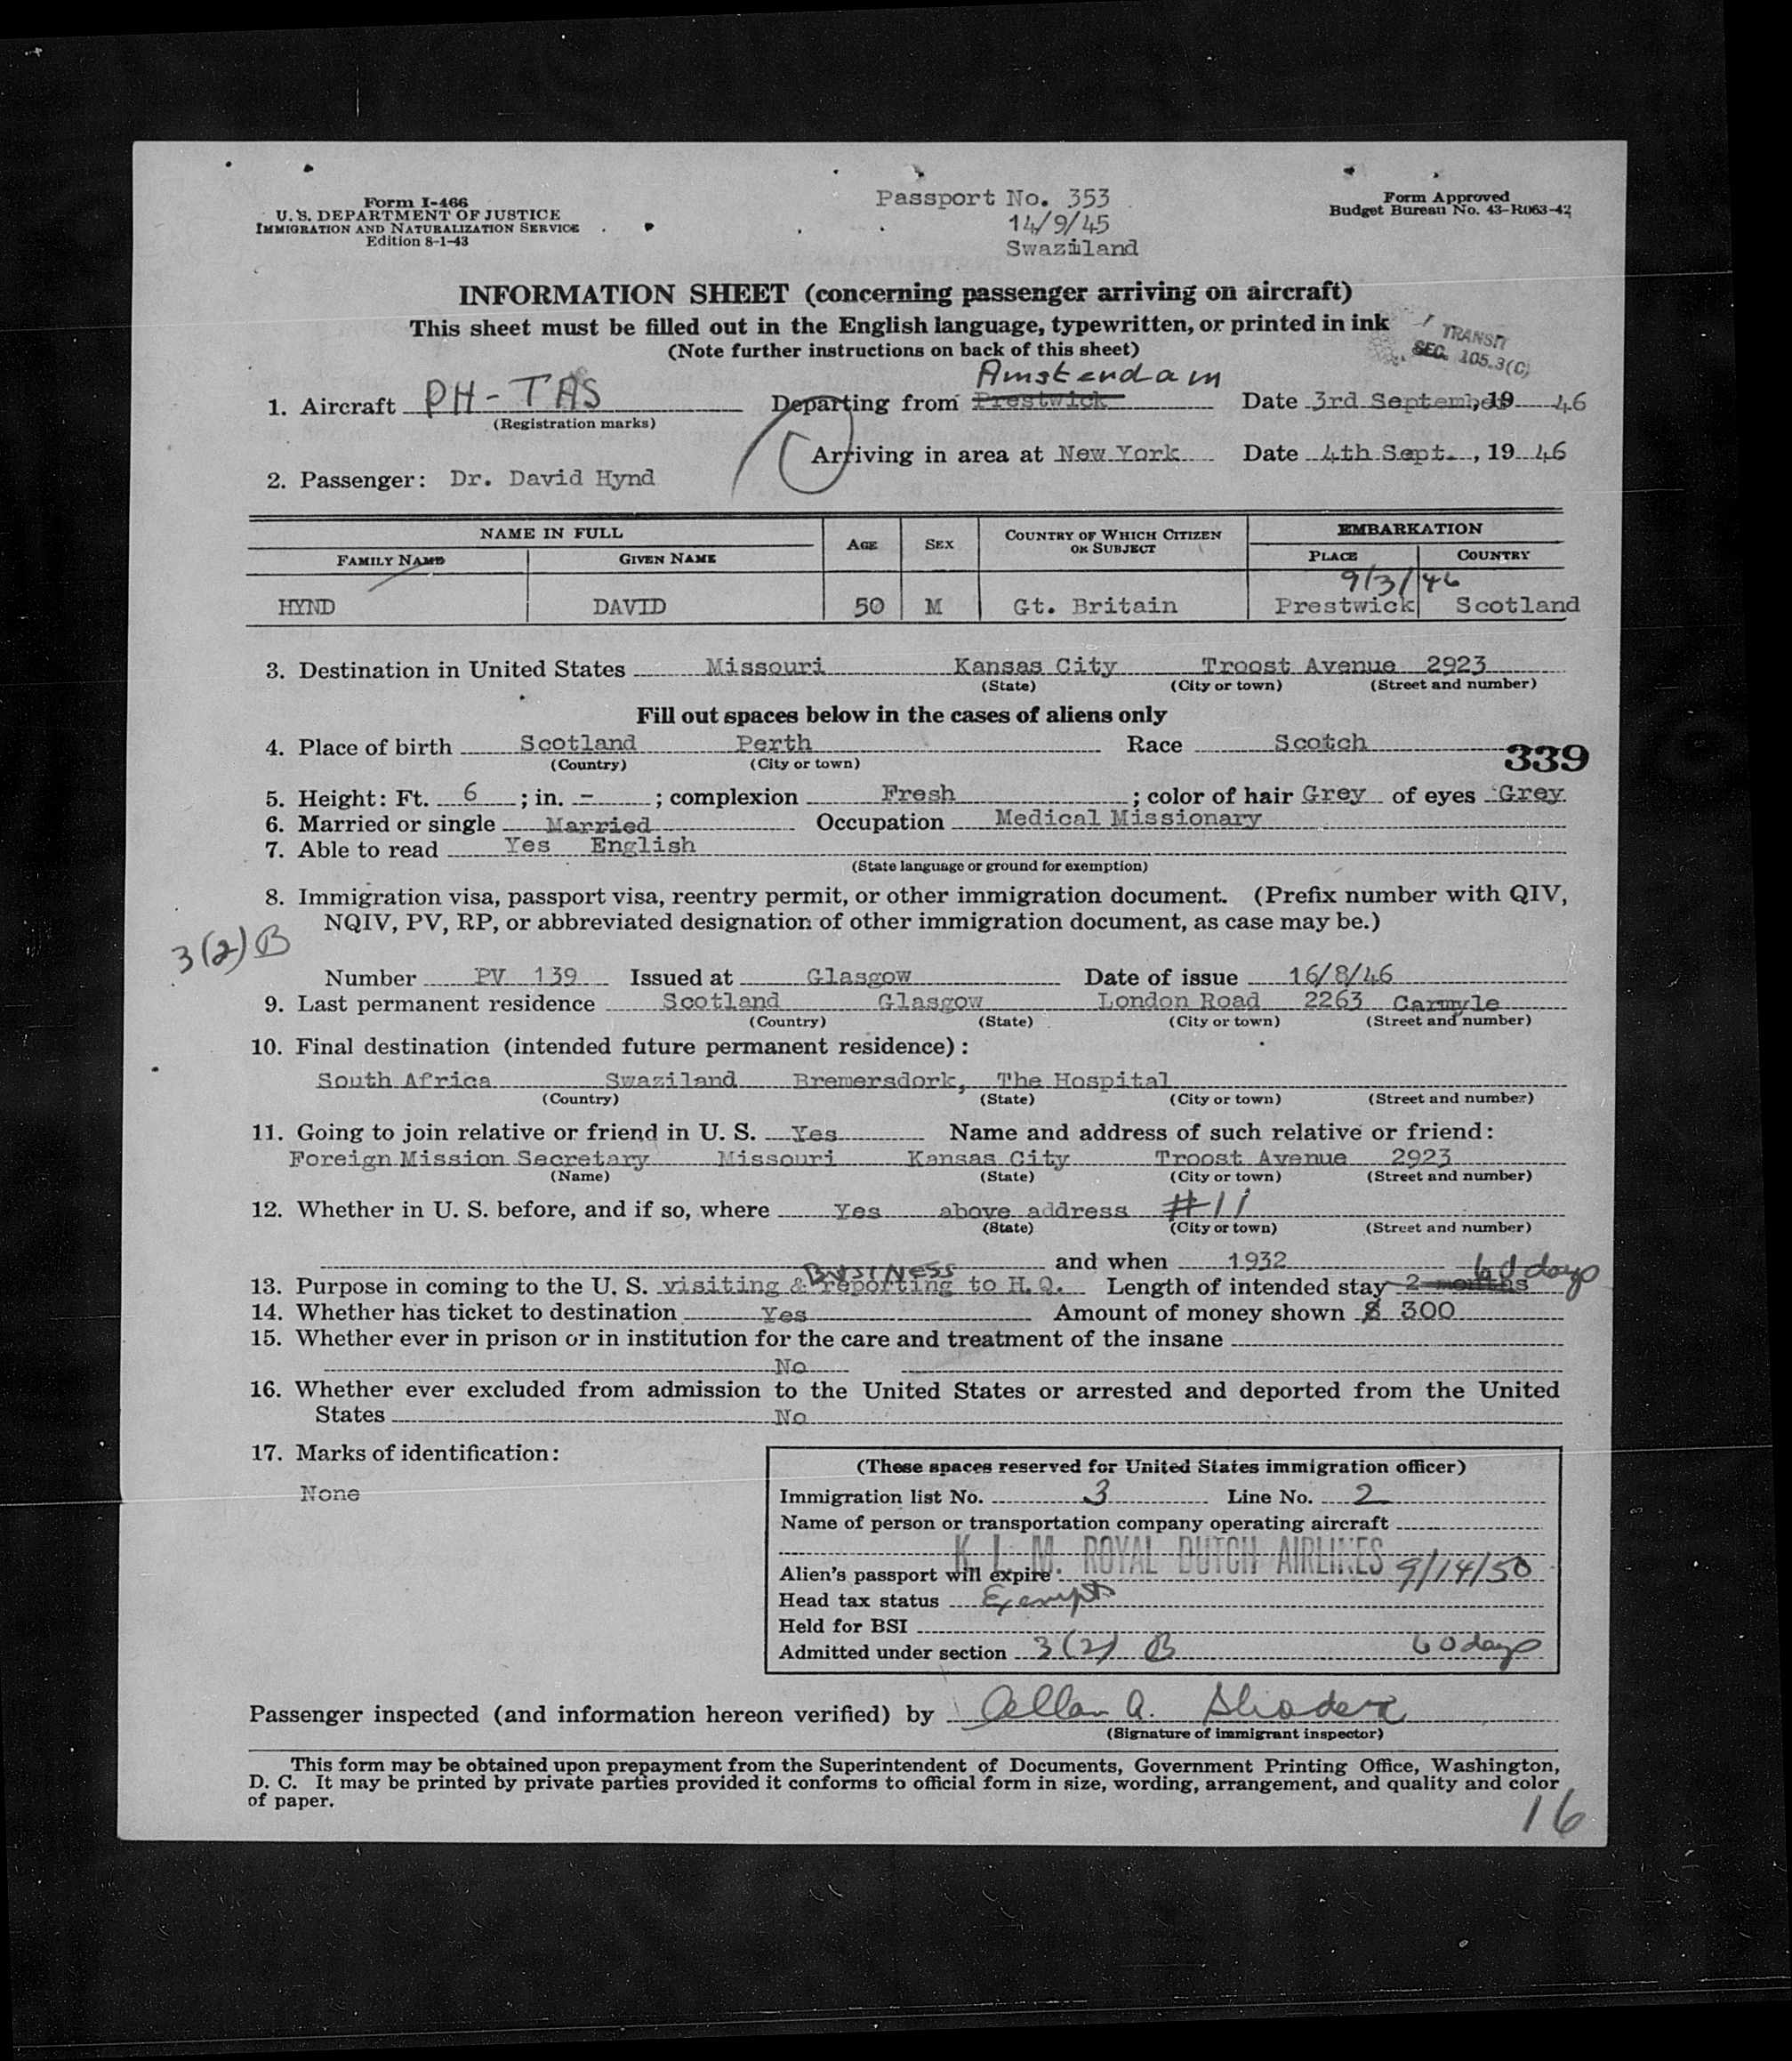 Form I-466
U. S. DEPARTMENT OF JUSTICE
IMMIGRATION AND NATURALIZATION SERVICE
Edition 8-1-43
Passport No. 353
14/9/45
Swaziland
Form Approved
Budget Bureau No. 43-R063-42
INFORMATION SHEET (concerning passenger arriving on aircraft)
This sheet must be filled out in the English language, typewritten, or printed in ink
(Note further instructions on back of this sheet)
TRANSIT
SEC. 105.3(C)
Amsterdam
1. Aircraft PH-TAS Departing from Prestwick Date 3rd September, 19 46
(Registration marks)
Arriving in area at New York Date 4th Sept. , 19 46
2. Passenger: Dr. David Hynd
NAME IN FULL AGE SEX COUNTRY OF WHICH CITIZEN OR SUBJECT EMBARKATION
FAMILY NAME GIVEN NAME PLACE COUNTRY
9/3/46
HYND DAVID 50 M Gt. Britain Prestwick Scotland
3. Destination in United States Missouri Kansas City Troost Avenue 2923
(State) (City or town) (Street and number)
Fill out spaces below in the cases of aliens only
4. Place of birth Scotland Perth Race Scotch
(Country) (City or town)
339
5. Height: Ft. 6 ; in. - ; complexion Fresh ; color of hair Grey of eyes Grey
6. Married or single Married Occupation Medical Missionary
7. Able to read Yes English
(State language or ground for exemption)
8. Immigration visa, passport visa, reentry permit, or other immigration document. (Prefix number with QIV,
NQIV, PV, RP, or abbreviated designation of other immigration document, as case may be.)
3(2)B
Number PV 139 Issued at Glasgow Date of issue 16/8/46
9. Last permanent residence Scotland Glasgow London Road 2263 Carmyle
(Country) (State) (City or town) (Street and number)
10. Final destination (intended future permanent residence):
South Africa Swaziland Bremersdork, The Hospital
(Country) (State) (City or town) (Street and number)
11. Going to join relative or friend in U. S. Yes Name and address of such relative or friend:
Foreign Mission Secretary Missouri Kansas City Troost Avenue 2923
(Name) (State) (City or town) (Street and number)
12. Whether in U. S. before, and if so, where Yes above address #11
(State) (City or town) (Street and number)
and when 1932
BUSINESS 60 days
13. Purpose in coming to the U. S. visiting & reporting to H.Q. Length of intended stay 2 months
14. Whether has ticket to destination Yes Amount of money shown $ 300
15. Whether ever in prison or in institution for the care and treatment of the insane
No
16. Whether ever excluded from admission to the United States or arrested and deported from the United
States No
17. Marks of identification:
None
(These spaces reserved for United States immigration officer)
Immigration list No. 3 Line No. 2
Name of person or transportation company operating aircraft
K. L. M. ROYAL DUTCH AIRLINES
Alien's passport will expire 9/14/50
Head tax status Exempt
Held for BSI
Admitted under section 3(2) B 60 days
Passenger inspected (and information hereon verified) by Allan A.
(Signature of immigrant inspector)
This form may be obtained upon prepayment from the Superintendent of Documents, Government Printing Office, Washington,
D. C. It may be printed by private parties provided it conforms to official form in size, wording, arrangement, and quality and color
of paper.
16